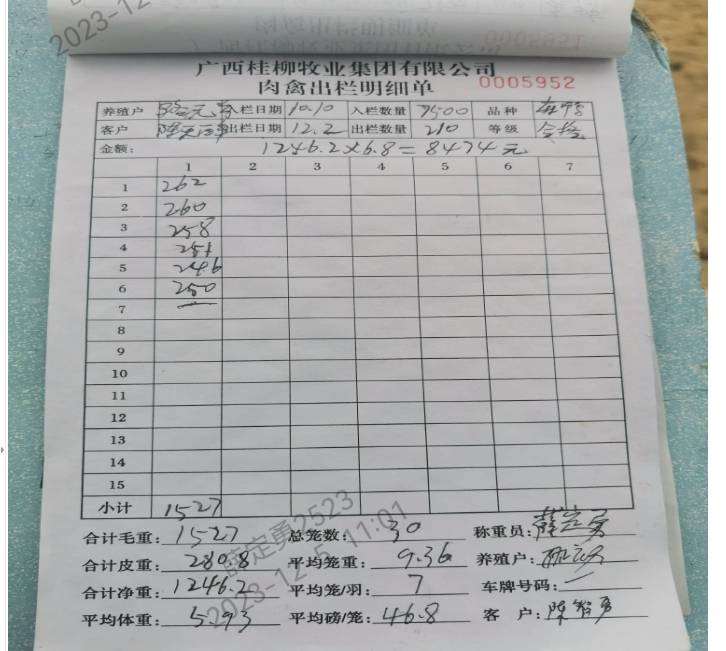 2023-12
0005951
广西桂柳牧业集团有限公司
肉禽出栏明细单 0005952
养殖户 入栏日期 10.10 入栏数量 7500 品种 麻鸭
客户 出栏日期 12.2 出栏数量 210 等级 合格
金额: 1246.2×6.8=8474元
1 2 3 4 5 6 7
1 262
2 260
3 258
4 251
5 246
6 250
7
8
9
10
11
12
13
14
15
小计 1527
合计毛重: 1527 总笼数: 30 称重员: 薛定勇
合计皮重: 280.8 平均笼重: 9.36 养殖户:
合计净重: 1246.2 平均笼/羽: 7 车牌号码: 一
平均体重: 5.93 平均磅/笼: 46.8 客 户: 陈智勇
薛定勇2523
2023-12-5 11:01